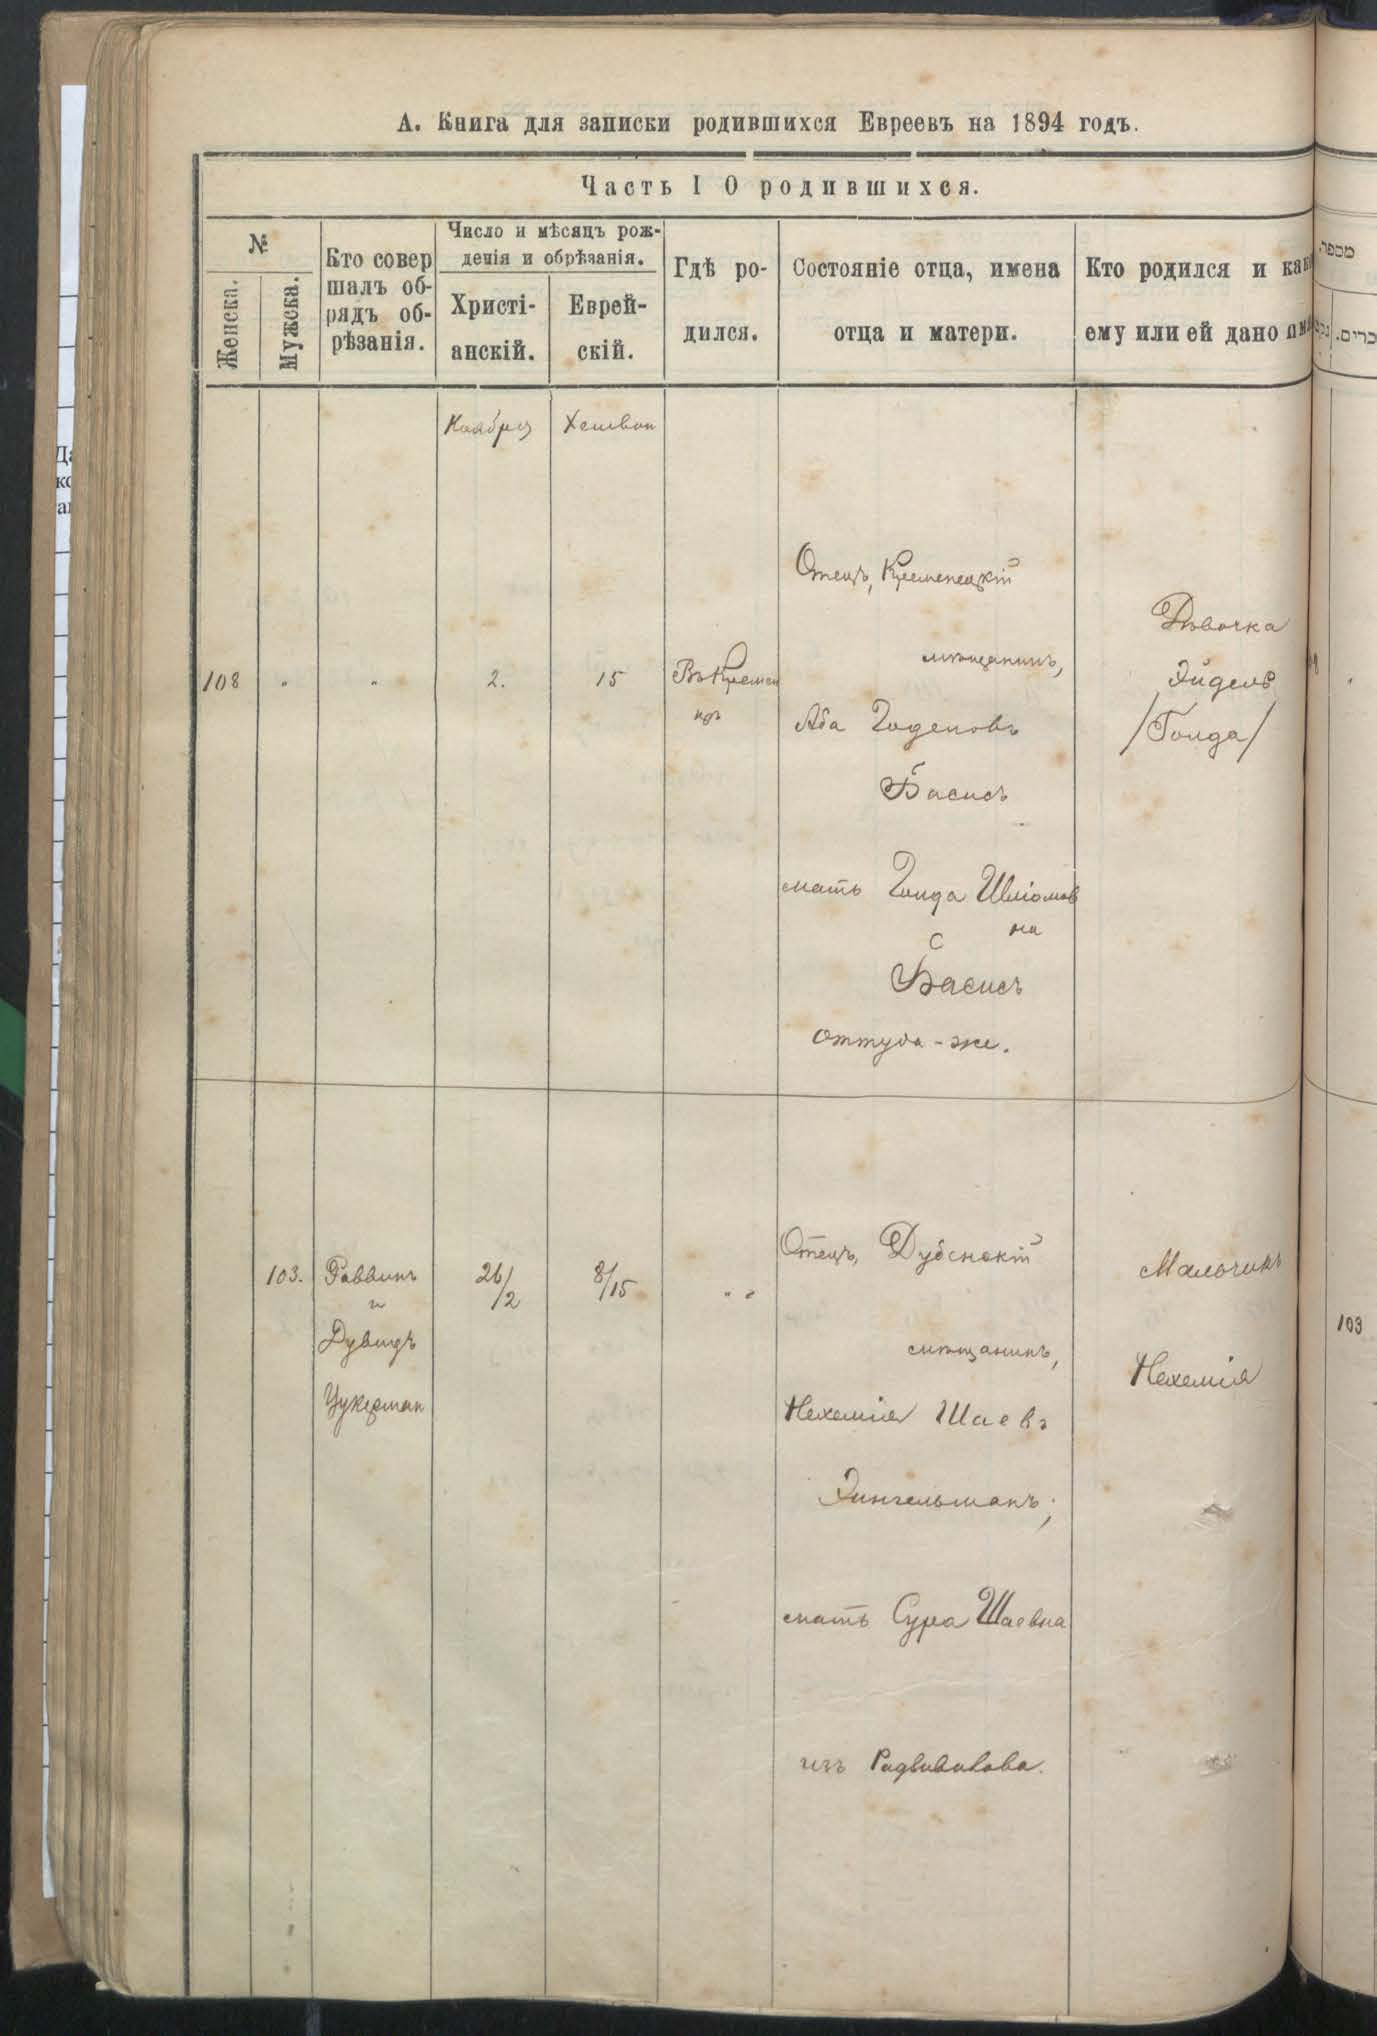 А. Книга для записки родившихся Евреевъ на 1894 годъ.
Часть I О родившихся.
№
Женска.
Мужска.
Кто совер
шалъ об-
рядъ об-
рѣзанія.
Число и мѣсяцъ рож-
денія и обрѣзанія.
Христі-
анскій.
Еврей-
скій.
Гдѣ ро-
дился.
Состояніе отца, имена
отца и матери.
Кто родился и как
ему или ей дано им
מספר.
זכרים.
Ноября
Хешван
108
"
"
2.
15
Въ Кремен
цѣ
Отецъ, Кременецкій
мѣщанинъ,
Аба Годелювъ
Басисъ
мать Голда Шліомов
на
Басисъ
оттуда-же.
Дѣвочка
Эйдель
/Голда/
103.
Раввинъ
и
Дувидъ
Цукерман
26/2
8/15
" "
Отецъ, Дубенскій
мѣщанинъ,
Нехемія Шаевъ
Энгельманъ;
мать Сура Шаевна
изъ Радзивилова.
Мальчикъ
Нехемія
103